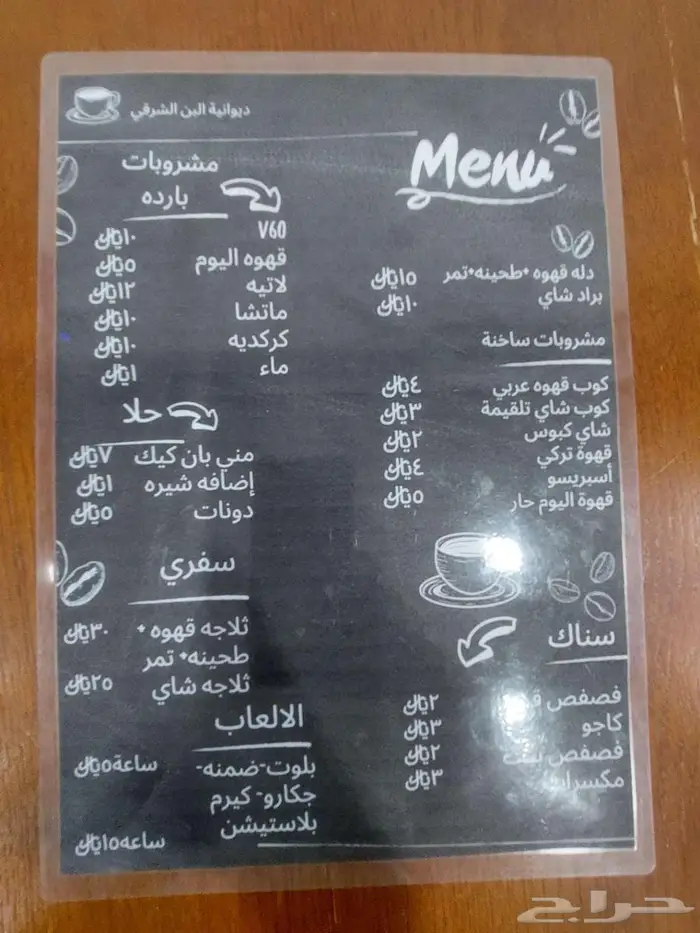 ديوانية البن الشرقي
Menu
دله قهوه +طحينه+تمر ١٥ريال
براد شاي ١٠ريال
مشروبات ساخنة
كوب قهوه عربي ٤ريال
كوب شاي تلقيمة ٣ريال
شاي كبوس ٢ريال
قهوة تركي ٤ريال
أسبريسو
قهوة اليوم حار ٥ريال
سناك
فصفص ٢ريال
كاجو ٣ريال
فصفص ٢ريال
مكسرات ٣ريال
مشروبات
بارده
V60 ١٠ريال
قهوه اليوم ٥ريال
لاتيه ١٢ريال
ماتشا ١٠ريال
كركديه ١٠ريال
ماء ١ريال
حلا
مني بان كيك ٧ريال
إضافه شيره ١ريال
دونات ٥ريال
سفري
ثلاجه قهوه + ٣٠ريال
طحينه+ تمر
ثلاجه شاي ٢٥ريال
الالعاب
بلوت-ضمنه- ساعة٥ريال
جكارو- كيرم
بلاستيشن ساعه١٥ريال
حراج